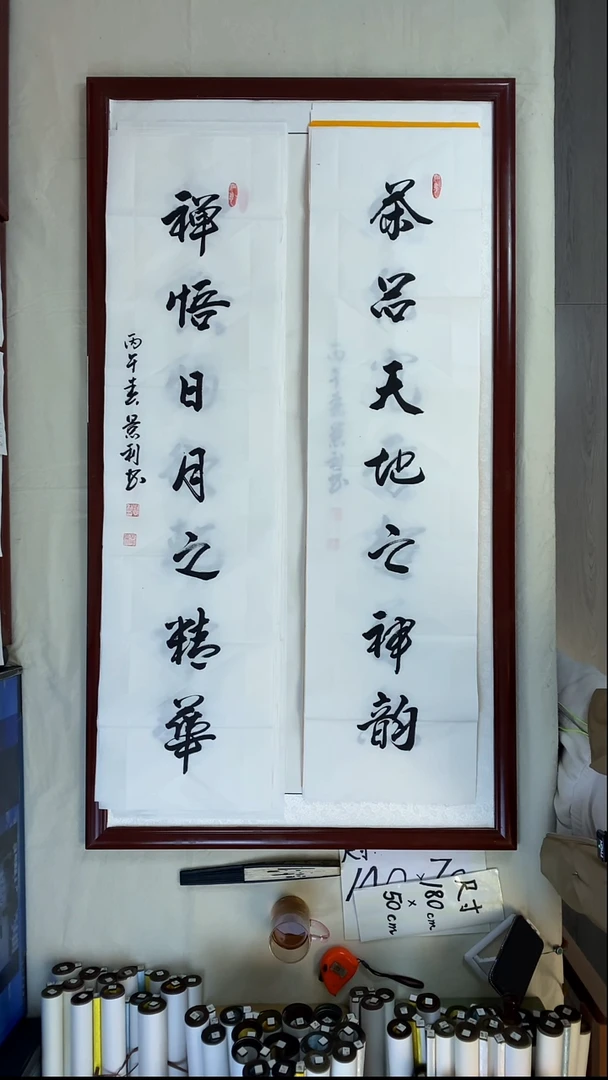 茶品天地之神韵
禅悟日月之精華
丙午春景利书
尺寸
180cm
×
50cm